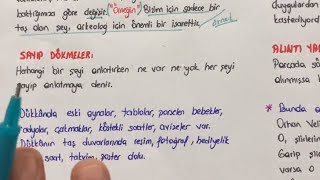 baktığımıza göre değişir. "Örneğin" Bizim için sadece bir
taş olan şey, arkeolog için önemli bir işarettir. örnek
SAYIP DÖKMELER:
Herhangi bir şeyi anlatırken ne var ne yok her şeyi
sayıp anlatmaya denir.
Dükkânda eski aynalar, tablolar, porselen bebekler,
radyolar, çakmaklar, köstekli saatler, avizeler var.
Dükkanın taş duvarlarında resim, fotoğraf, hediyelik
saat, takvim, poster dolu.
duyguları
kastediyor
ALINTI YA
Parçada,
alınmışsa
* Bunda
Orhan Veli
Şiirle
Garip